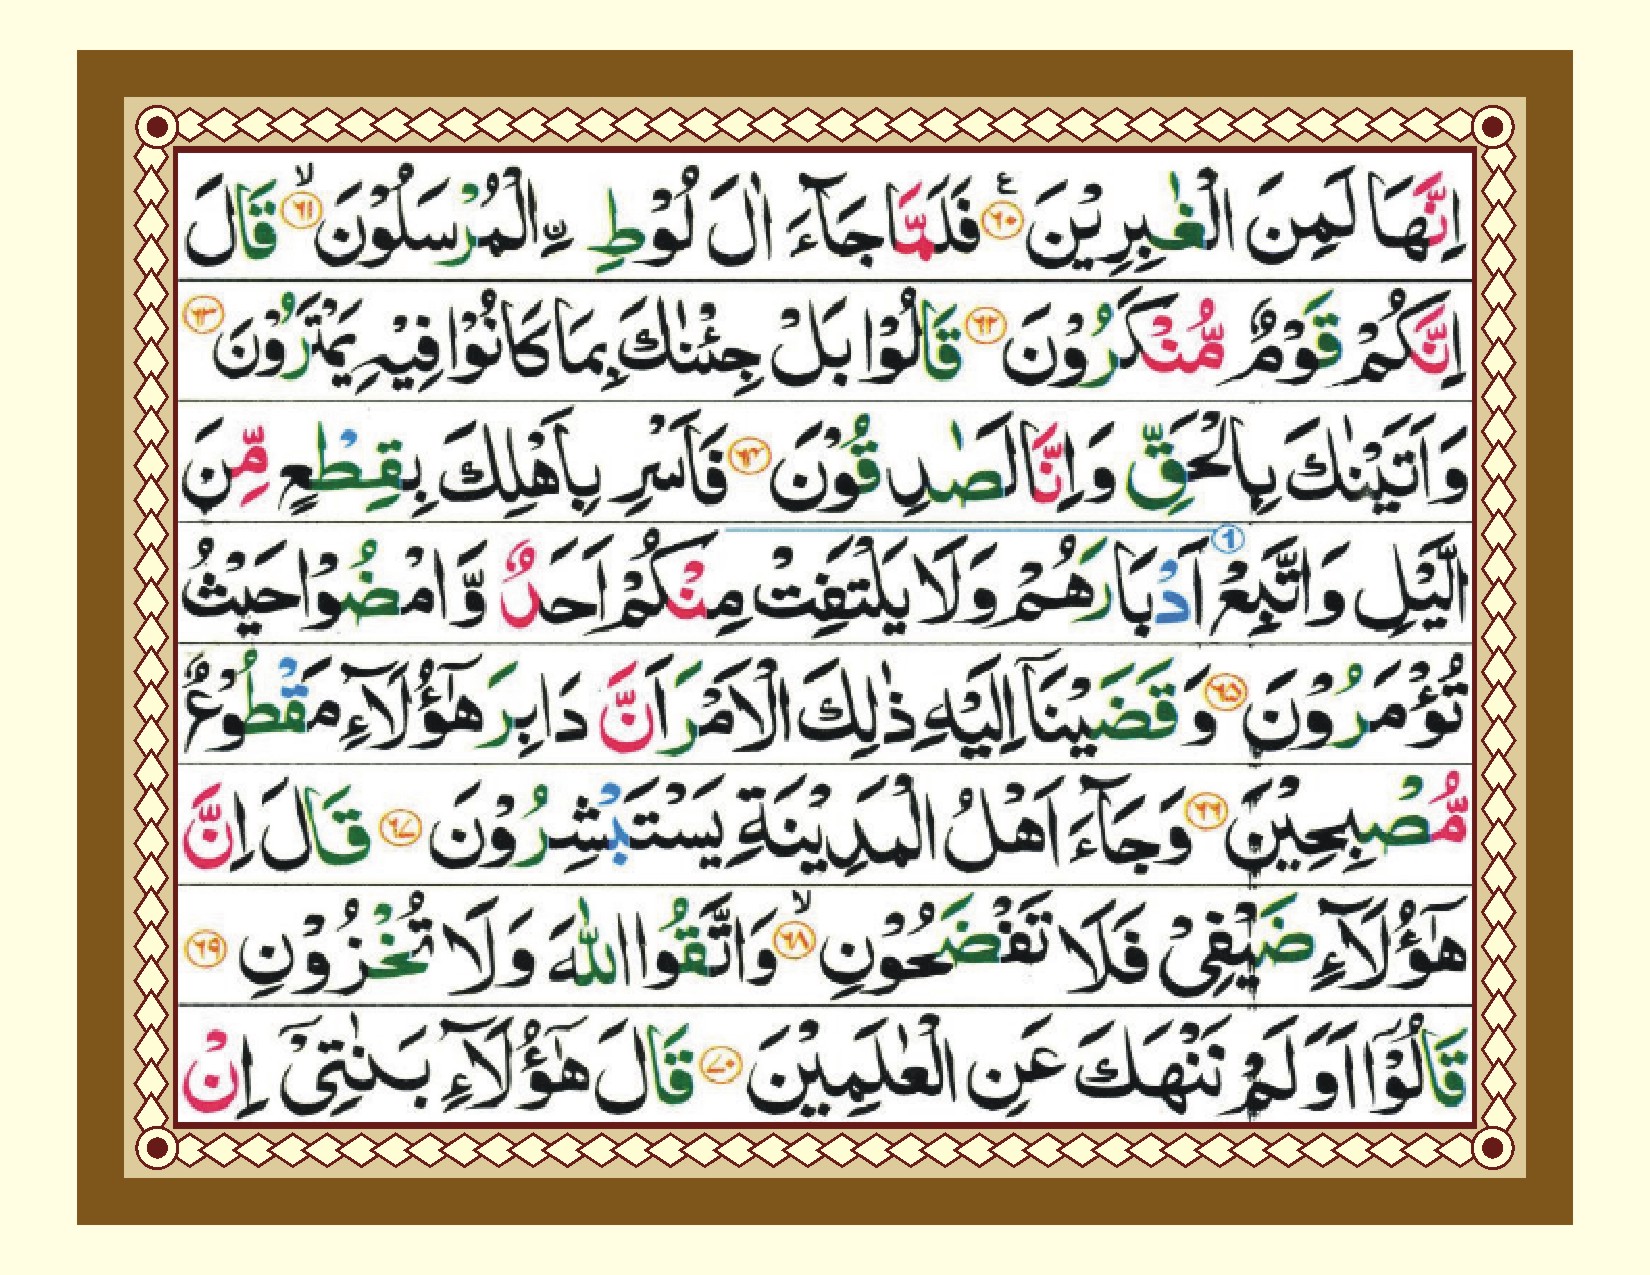 اِنَّهَا لَمِنَ الْغٰبِرِيْنَ ۶۰ ع فَلَمَّا جَآءَ اٰلَ لُوْطِ ۨالْمُرْسَلُوْنَ ۶۱ ۙ قَالَ
اِنَّكُمْ قَوْمٌ مُّنْكَرُوْنَ ۶۲ قَالُوْا بَلْ جِئْنٰكَ بِمَا كَانُوْا فِيْهِ يَمْتَرُوْنَ ۶۳
وَاَتَيْنٰكَ بِالْحَقِّ وَاِنَّا لَصٰدِقُوْنَ ۶۴ فَاَسْرِ بِاَهْلِكَ بِقِطْعٍ مِّنَ
الَّيْلِ وَاتَّبِعْ اَدْبَارَهُمْ وَلَا يَلْتَفِتْ مِنْكُمْ اَحَدٌ وَّامْضُوْا حَيْثُ ۱
تُؤْمَرُوْنَ ۶۵ وَقَضَيْنَآ اِلَيْهِ ذٰلِكَ الْاَمْرَ اَنَّ دَابِرَ هٰٓؤُلَآءِ مَقْطُوْعٌ
مُّصْبِحِيْنَ ۶۶ وَجَآءَ اَهْلُ الْمَدِيْنَةِ يَسْتَبْشِرُوْنَ ۶۷ قَالَ اِنَّ
هٰٓؤُلَآءِ ضَيْفِيْ فَلَا تَفْضَحُوْنِ ۶۸ ۙ وَاتَّقُوا اللّٰهَ وَلَا تُخْزُوْنِ ۶۹
قَالُوْٓا اَوَلَمْ نَنْهَكَ عَنِ الْعٰلَمِيْنَ ۷۰ قَالَ هٰٓؤُلَآءِ بَنٰتِيْٓ اِنْ